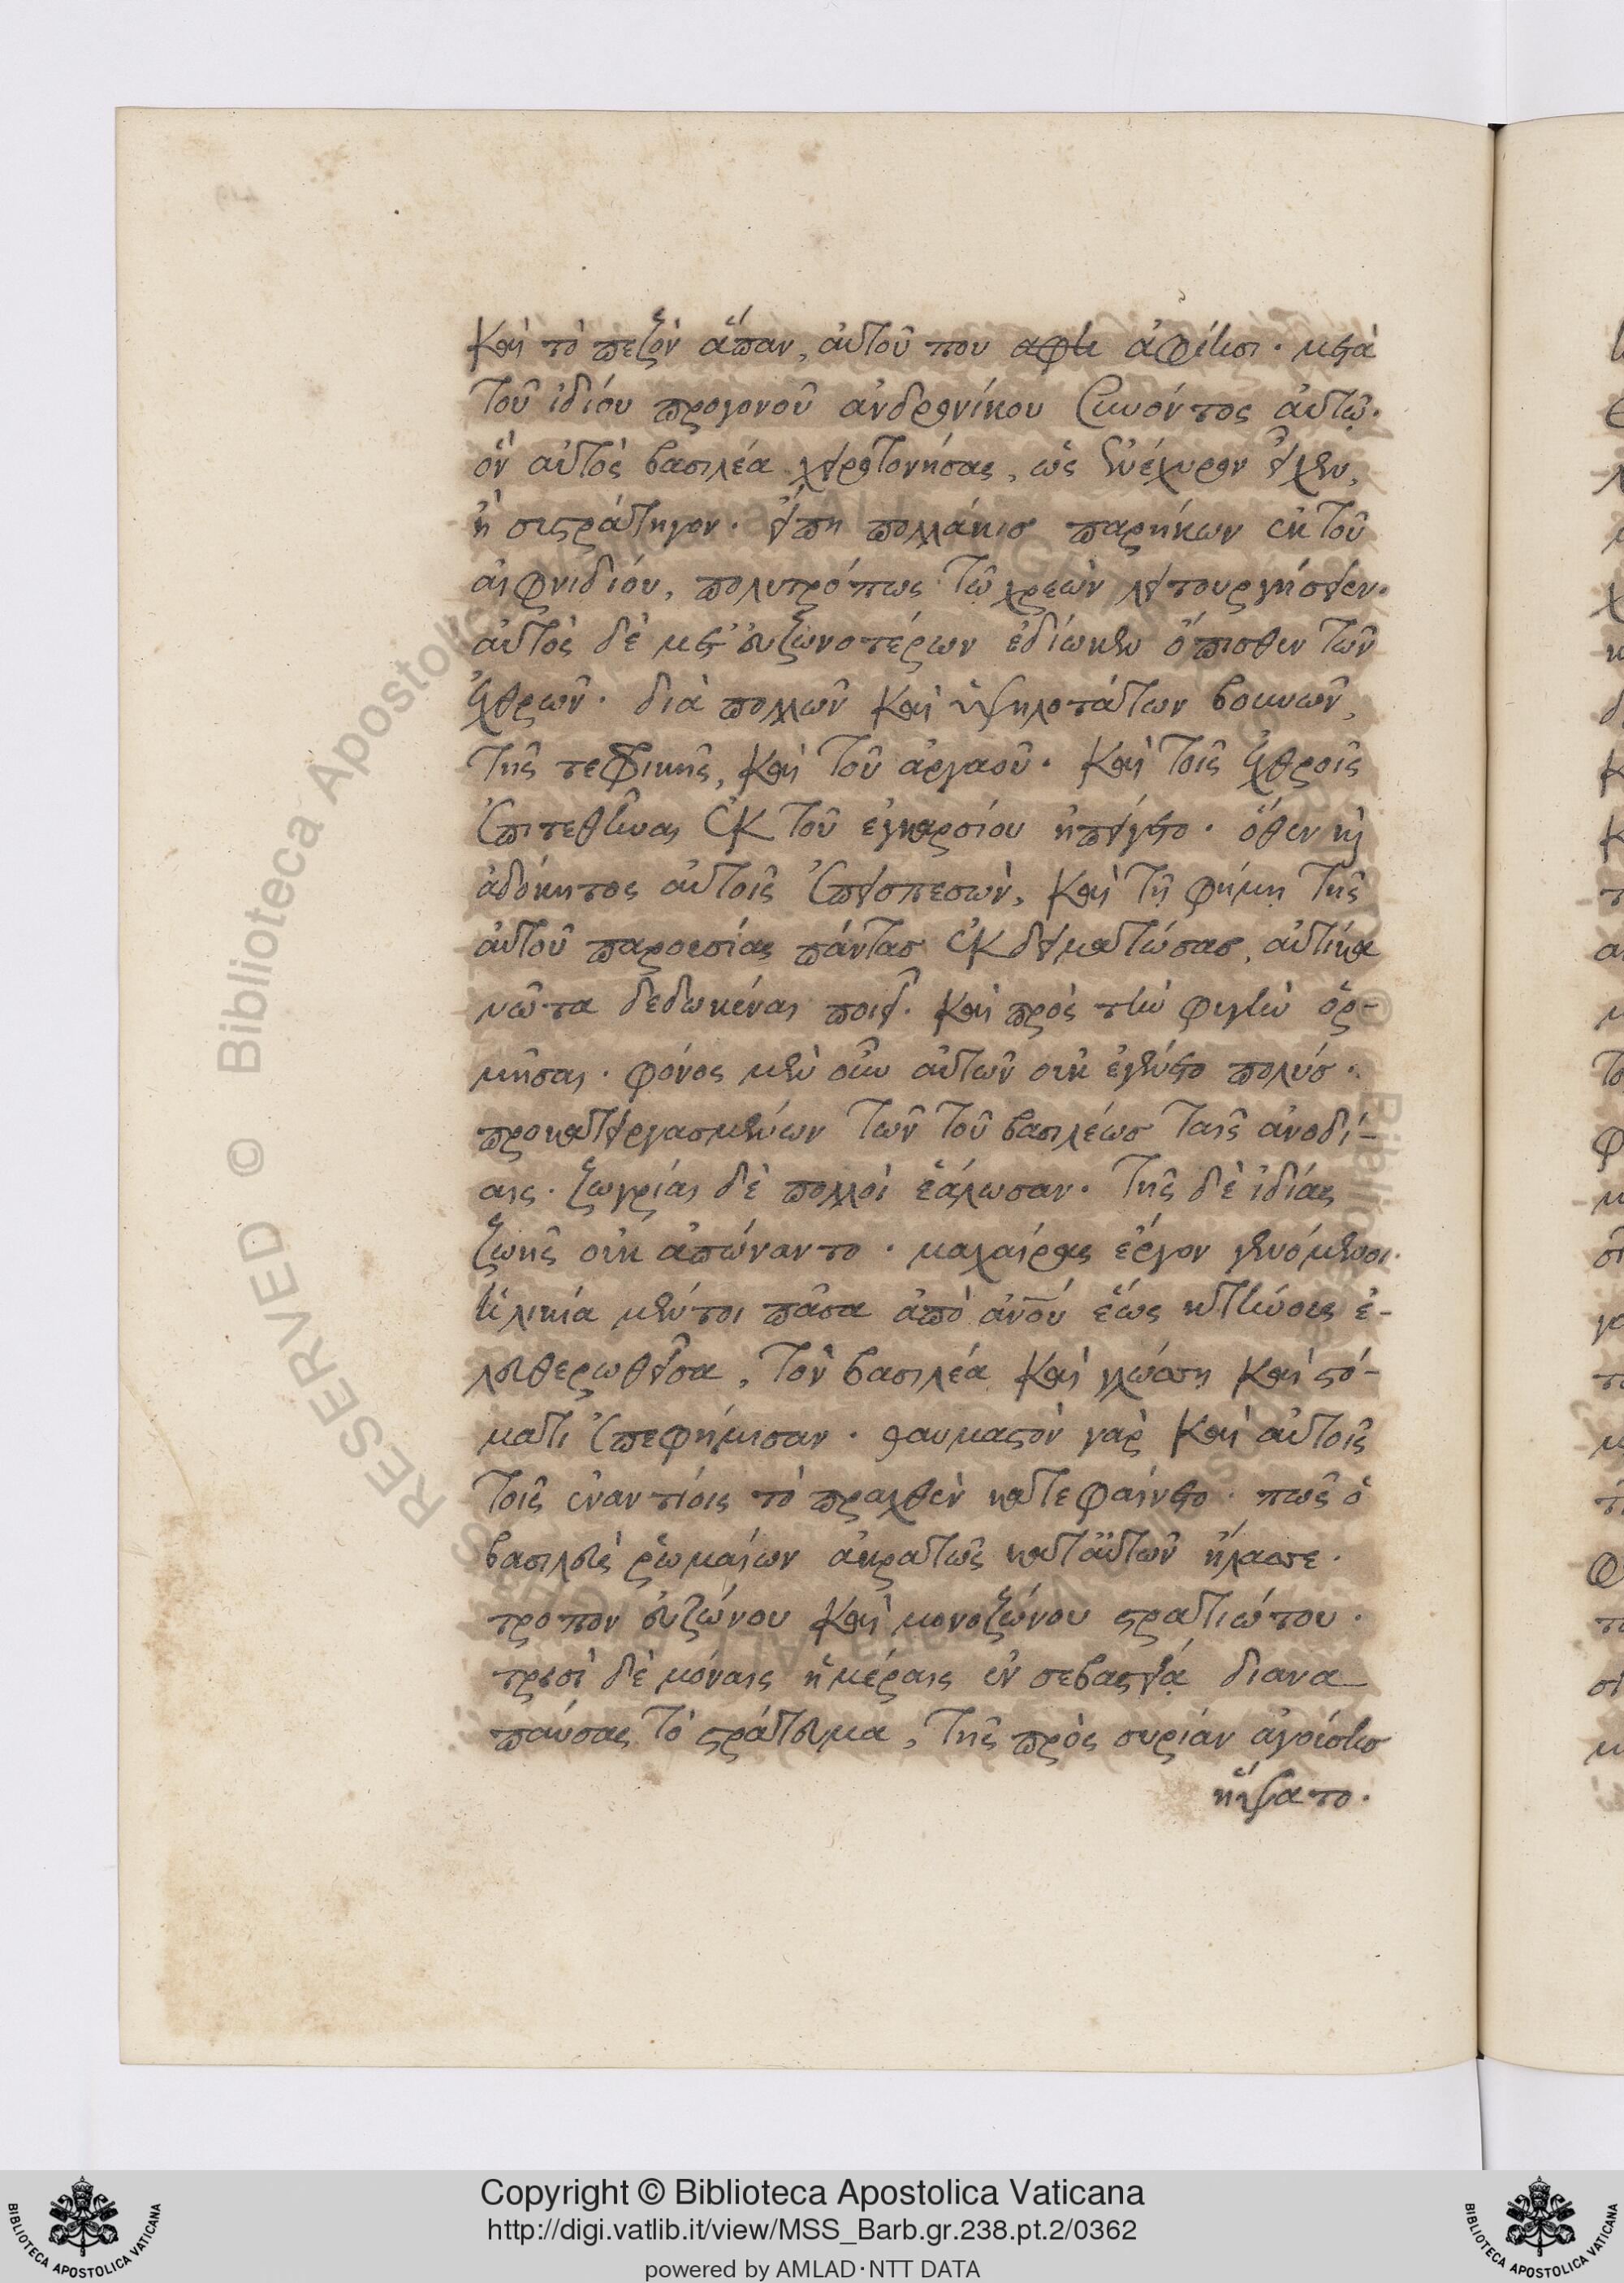 καὶ τὸ πεζὸν ἅπαν, αὐτοῦ που ἀφίησι· μετὰ
τοῦ ἰδίου προγονοῦ ἀνδρονίκου αὐτῷ·
ὃν αὐτὸς βασιλέα χειροτονήσας, ὡς ἐνέχυρον εἶχεν,
ἢ συστράτηγον· εἴπη πολλάκις παρήκων ἐκ τοῦ
αἰφνιδίου, πολυτρόπως τῷ χρεὼν λειτουργήσειεν·
αὐτὸς δὲ μετ' εὐζωνοτέρων ἐδίωκεν ὄπισθεν τῶν
ἐχθρῶν· διὰ πολλῶν καὶ ὑψηλοτάτων βουνῶν,
τῆς τεφρικῆς, καὶ τοῦ ἀργαοῦ· καὶ τοῖς ἐχθροῖς
ἐπιτεθῆναι ἐκ τοῦ ἐγκαρσίου ἠπείγετο· ὅθεν καὶ
ἀδόκητος αὐτοῖς ἐπεισπεσὼν, καὶ τῇ φήμῃ τῆς
αὐτοῦ παρουσίας πάντας ἐκδειματώσας, αὐτίκα
νῶτα δεδωκέναι ποιεῖ· καὶ πρὸς τὴν φυγὴν ὁρ-
μῆσαι· φόνος μὲν οὖν αὐτῶν οὐκ ἐγένετο πολύς·
προκατειργασμένων τῶν τοῦ βασιλέως ταῖς ἀνοδί-
αις· ζωγρίαι δὲ πολλοὶ ἑάλωσαν· τῆς δὲ ἰδίας
ζωῆς οὐκ ἀπώναντο· μαχαίρας ἔργον γενόμενοι·
ἡλικία μέντοι πᾶσα ἀπὸ ἀνοῦ ἕως κτήνους ἐ-
λευθερωθεῖσα, τὸν βασιλέα καὶ γλώσσῃ καὶ στό-
ματι ἐπεφήμισαν· θαυμαστὸν γὰρ καὶ αὐτοῖς
τοῖς ἐναντίοις τὸ πραχθὲν κατεφαίνετο· πῶς ὁ
βασιλεὺς ῥωμαίων ἀκρατῶς κατ' αὐτῶν ἤλασε·
τροπον εὐζώνου καὶ μονοζώνου στρατιώτου·
τρισὶ δὲ μόναις ἡμέραις ἐν σεβαστείᾳ διανα
παύσας τὸ στράτευμα, τῆς πρὸς συρίαν ἀγούσης
ἥψατο·
RESERVED © Biblioteca Apostolica Vaticana
Copyright © Biblioteca Apostolica Vaticana
http://digi.vatlib.it/view/MSS_Barb.gr.238.pt.2/0362
powered by AMLAD·NTT DATA
BIBLIOTECA APOSTOLICA VATICANA
BIBLIOTECA APOSTOLICA VATICANA